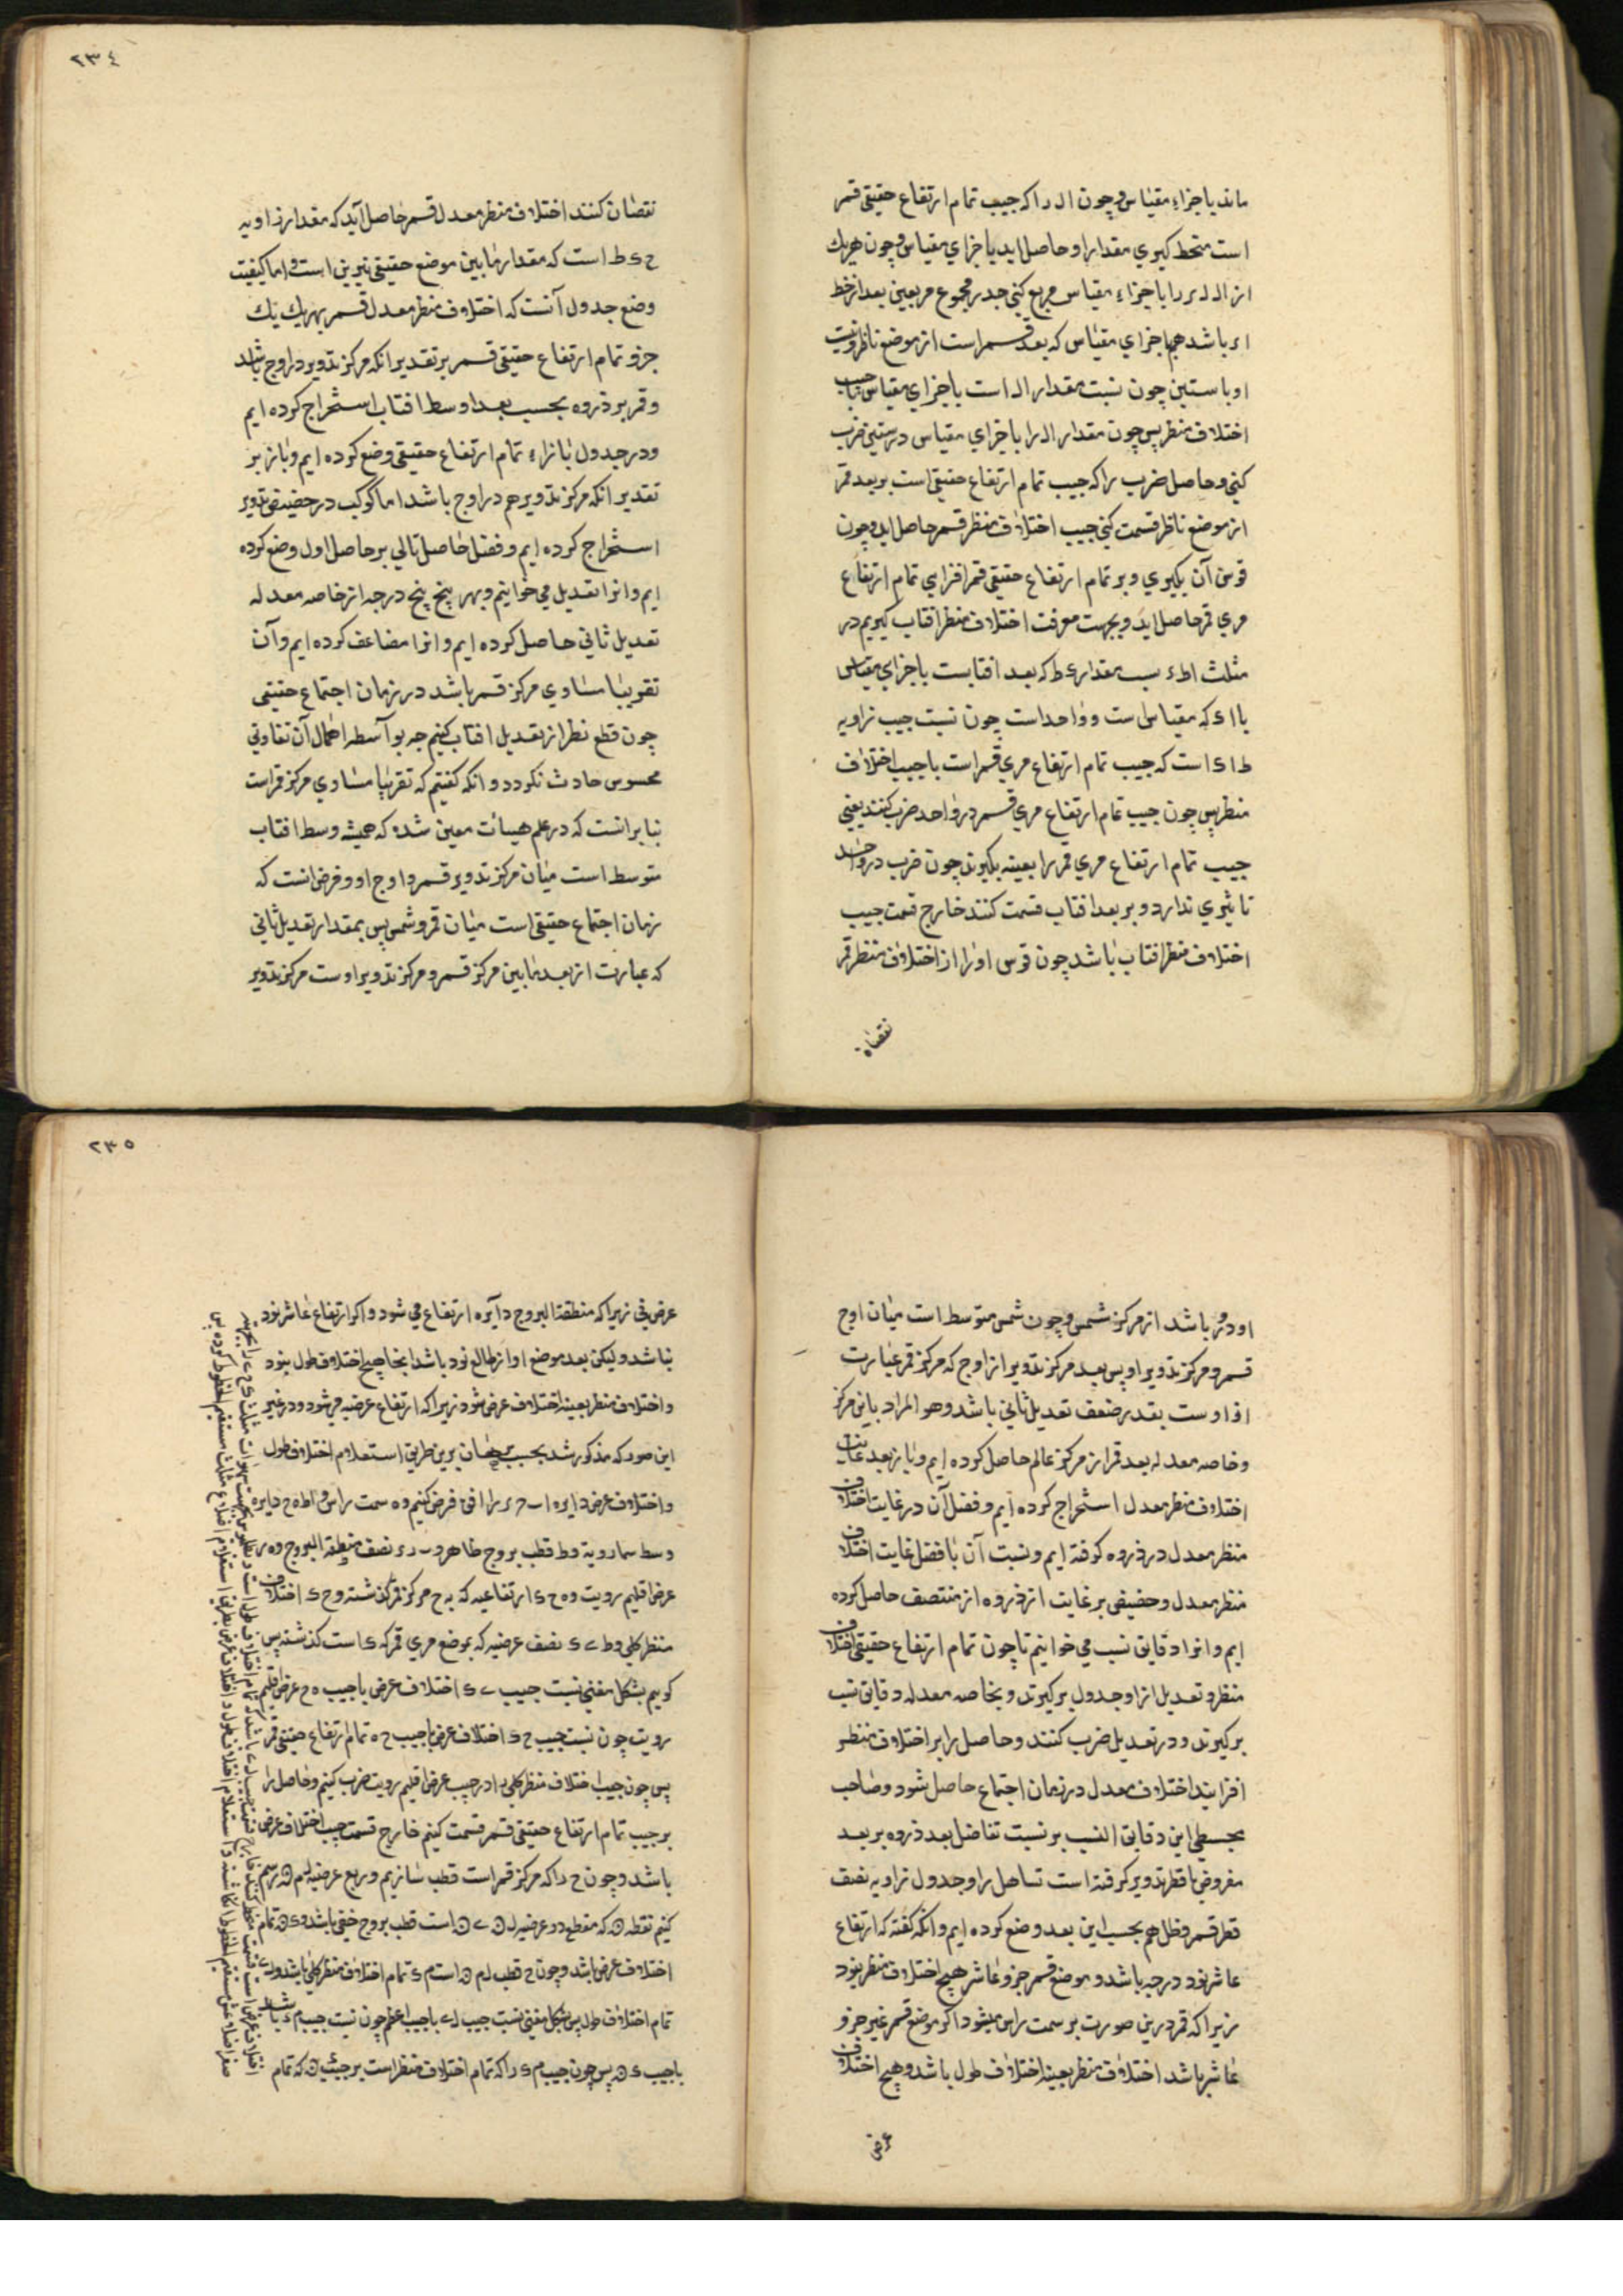 ماند باجزاء مقیاس و چون ال را که جیب تمام ارتفاع حقیقی قمر
است منحط کیری مقدار او حاصل اید باجزای مقیاس و چون هریك
از ال لر را باجزاء مقیاس مربع کنی جذر مجموع مربعین بعد از خط
ار باشد هم باجزای مقیاس که بعد قمر است از موضع ناظر و نسبت
او باستین چون نسبت مقدار ال است باجزای مقیاس با جیب
اختلاف منظر پس چون مقدار ال را باجزای مقیاس در ستین ضرب
کنی و حاصل ضرب را که جیب تمام ارتفاع حقیقی است بر بعد قمر
از موضع ناظر قسمت کنی جیب اختلاف منظر قمر حاصل اید و چون
قوس آن بکیری و بر تمام ارتفاع حقیقی قمر افزایی تمام ارتفاع
مری قمر حاصل اید و بجهت معرفت اختلاف منظر افتاب کیریم در
مثلث اطء نسبت مقدار ی ط که بعد افتابست باجزای مقیاس
با ای که مقیاس است و واحد است چون نسبت جیب زاویه
ط ا ی است که جیب تمام ارتفاع مری قمر است با جیب اختلاف
منظر پس چون جیب تمام ارتفاع مری قمر در واحد ضرب کنند یعنی
جیب تمام ارتفاع مری قمر را بعینه بکیرند چون ضرب در واحد
تاثیری ندارد و بر بعد افتاب قسمت کنند خارج قسمت جیب
اختلاف منظر افتاب باشد چون قوس او را از اختلاف منظر قمر
نقصان
٢٣٤
نقصان کنند اختلاف منظر معدل قمر حاصل آید که مقدار زاویه
ح ی ط است که مقدار مابین موضع حقیقی نیرین است و اما کیفیت
وضع جدول آنست که اختلاف منظر معدل قمر بهر یك یك
جزو تمام ارتفاع حقیقی قمر بر تقدیر انکه مرکز تدویر در اوج باشد
و قمر بر ذروه بحسب بعد اوسط افتاب استخراج کرده ایم
و در جدول بازاء تمام ارتفاع حقیقی وضع کرده ایم و باز بر
تقدیر انکه مرکز تدویر هم در اوج باشد اما کوکب در حضیض تدویر
استخراج کرده ایم و فضل حاصل تالی بر حاصل اول وضع کرده
ایم و انرا تعدیل می خوانیم و بهر پنج پنج درجه از خاصه معدله
تعدیل ثانی حاصل کرده ایم و انرا مضاعف کرده ایم و آن
تقریبا مساوی مرکز قمر باشد در زمان اجتماع حقیقی
چون قطع نظر از تعدیل افتاب کنیم چه بواسطه اهمال آن تفاوتی
محسوس حادث نکردد و انکه کفتیم که تقریبا مساوی مرکز قمر است
بنابرانست که در علم هیات معین شده که همیشه وسط افتاب
متوسط است میان مرکز تدویر قمر و اوج او و فرض انست که
زمان اجتماع حقیقی است میان قمر و شمس پس بمقدار تعدیل ثانی
که عبارت از بعد مابین مرکز قمر و مرکز تدویر اوست مرکز تدویر
او دور باشد از مرکز شمس و چون شمس متوسط است میان اوج
قمر و مرکز تدویر او پس بعد مرکز تدویر از اوج که مرکز قمر عبارت
ازاوست بقدر ضعف تعدیل ثانی باشد و هو المراد باین مرکز
و خاصه معدله بعد قمر از مرکز عالم حاصل کرده ایم و باز بعد غایت
اختلاف منظر معدل استخراج کرده ایم و فضل آن در غایت اختلاف
منظر معدل در ذروه کرفته ایم و نسبت آن با فضل غایت اختلاف
منظر معدل و حضیض بر غایت از ذروه از منتصف حاصل کرده
ایم و انرا دقایق نسب می خوانیم تا چون تمام ارتفاع حقیقی اختلاف
منظر و تعدیل انرا و جدول برکیرند و بخاصه معدله دقایق نسب
برکیرند و در تعدیل ضرب کنند و حاصل را بر اختلاف منظر
افزایند اختلاف معدل در زمان اجتماع حاصل شود و صاحب
مجسطی این دقایق النسب بر نسبت تفاضل بعد ذروه بر بعد
مفروض با قطر تدویر کرفته است تساهل را و جدول زاویه نصف
قطر قمر و ظل هم بحسب این بعد وضع کرده ایم و انکه کفته که ارتفاع
عاشر نود درجه باشد و موضع قمر جزو عاشر هیچ اختلاف منظر نبود
زیرا که قمر درین صورت بر سمت راس میشود اکر موضع قمر غیر جزو
عاشر باشد اختلاف منظر بعینه اختلاف طول باشد و هیچ اختلاف
عرض
٢٣٥
عرض نی زیرا که منطقة البروج دایره ارتفاع می شود و اکر ارتفاع عاشر نود
نباشد ولیکن بعد موضع او از طالع نود باشد اینجا هیچ اختلاف طول نبود
و اختلاف منظر بعینه اختلاف عرض شود زیرا که ارتفاع عرضیه می شود و در غیر
این صور که مذکور شد بحسب برهان برین طریق استعلام اختلاف طول
و اختلاف عرض دایره ا ب ح ر را افق فرض کنیم و ه سمت راس و اطه ح دایره
وسط سماء رویة و ط قطب بروج ظاهر و ب ر ء نصف منطقة البروج و ه ر
عرض اقلیم رویت و ه ح ی ارتفاعیه که به ح مرکز قمر کذشته و ح ی اختلاف
منظر کلی و ط ے ی نصف عرضیه که بموضع مری قمر که ی است کذشته پس
کوییم بشکل مغنی نسبت جیب ے ی اختلاف عرض با جیب ه ح عرض اقلیم
رویت چون نسبت جیب ح ی اختلاف عرض با جیب ح ه تمام ارتفاع حقیقی قمر
پس چون جیب اختلاف منظر کلی را در جیب عرض اقلیم رویت ضرب کنیم و حاصل را
بر جیب تمام ارتفاع حقیقی قمر قسمت کنیم خارج قسمت جیب اختلاف عرض
باشد و چون ح را که مرکز قمر است قطب سازیم و ربع عرضیه لم ن رسم
کنیم نقطه ن که مقطع دو عرضیه ل ن ے ن است قطب بروج خفی باشد و ی ن تمام
اختلاف عرض باشد و چون ح قطب ل م ن است م ی تمام اختلاف منظر کلی باشد و ل ے
تمام اختلاف طول پس بشکل مغنی نسبت جیب ل ے با جیب اعظم چون نسبت جیب م ی باشد
با جیب ی ن پس چون جیب م ی را که تمام اختلاف منظر است بر جیب ی ن که تمام